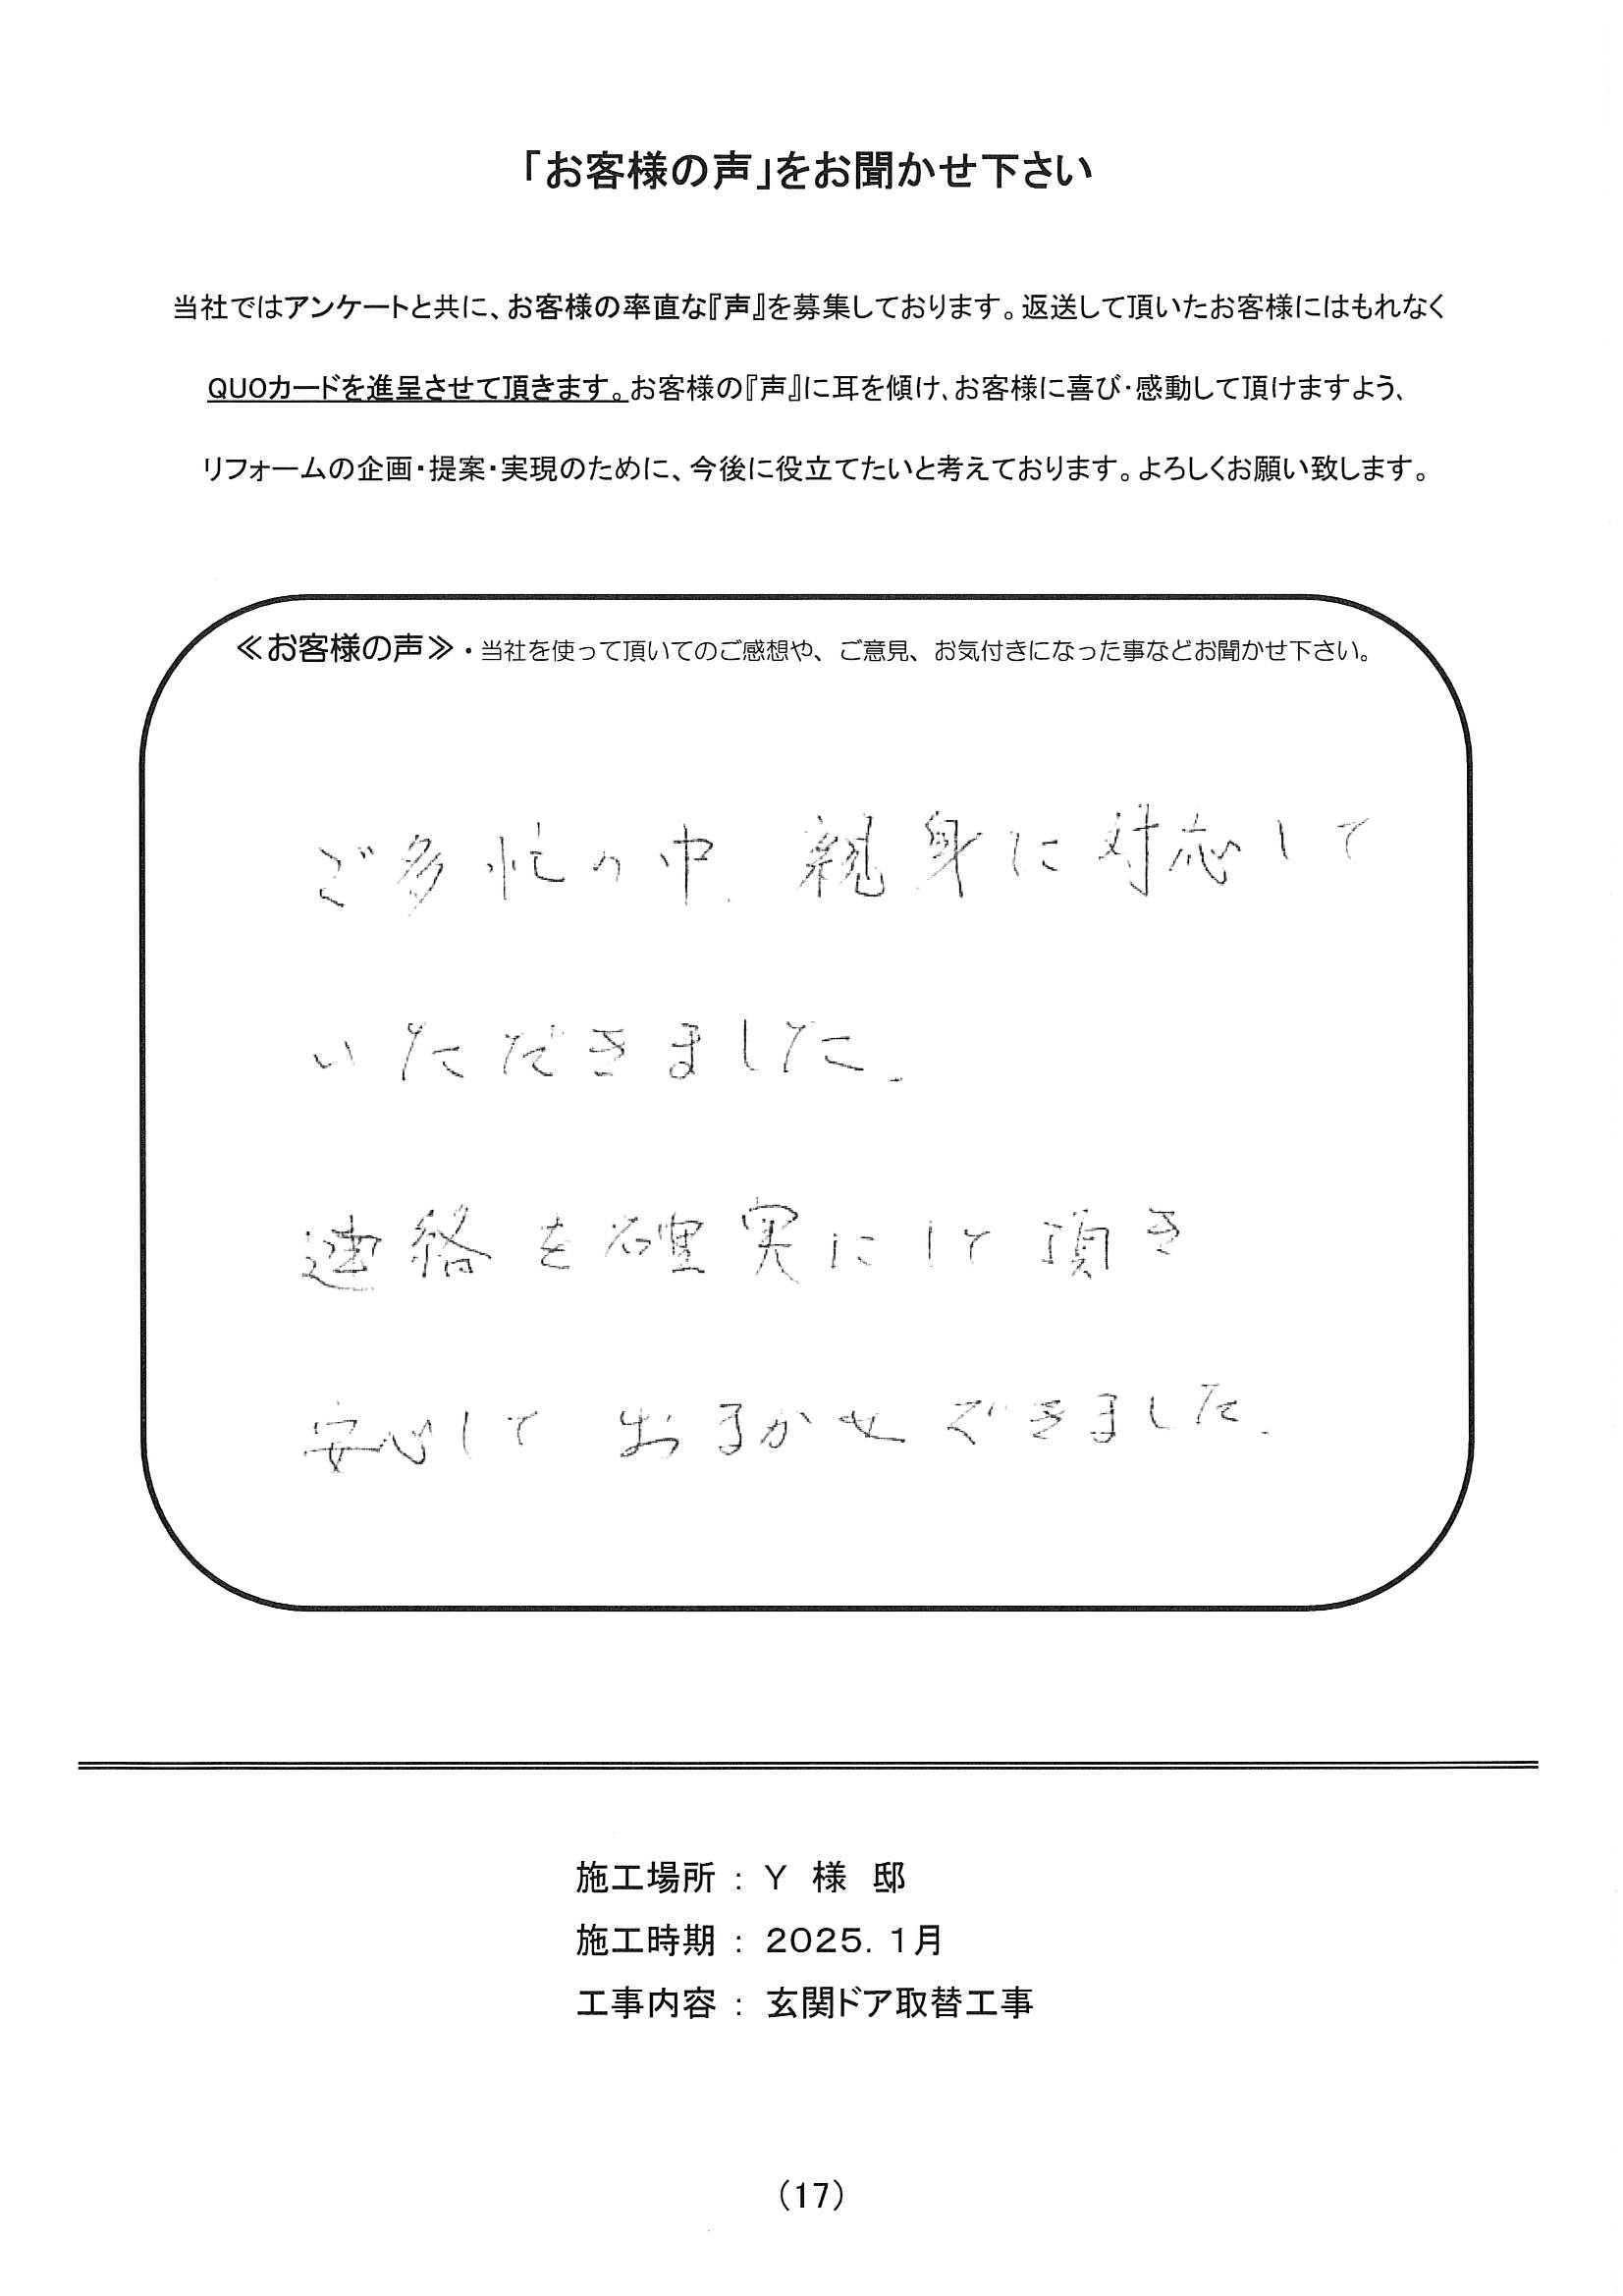 「お客様の声」をお聞かせ下さい
当社ではアンケートと共に、お客様の率直な『声』を募集しております。返送して頂いたお客様にはもれなく
QUOカードを進呈させて頂きます。お客様の『声』に耳を傾け、お客様に喜び・感動して頂けますよう、
リフォームの企画・提案・実現のために、今後に役立てたいと考えております。よろしくお願い致します。
≪お客様の声≫・当社を使って頂いてのご感想や、ご意見、お気付きになった事などお聞かせ下さい。
ご多忙の中、親身に対応して
いただきました。
連絡を確実にして頂き
安心して おまかせできました。
施工場所 : Y 様 邸
施工時期 : 2025. 1月
工事内容 : 玄関ドア取替工事
(17)